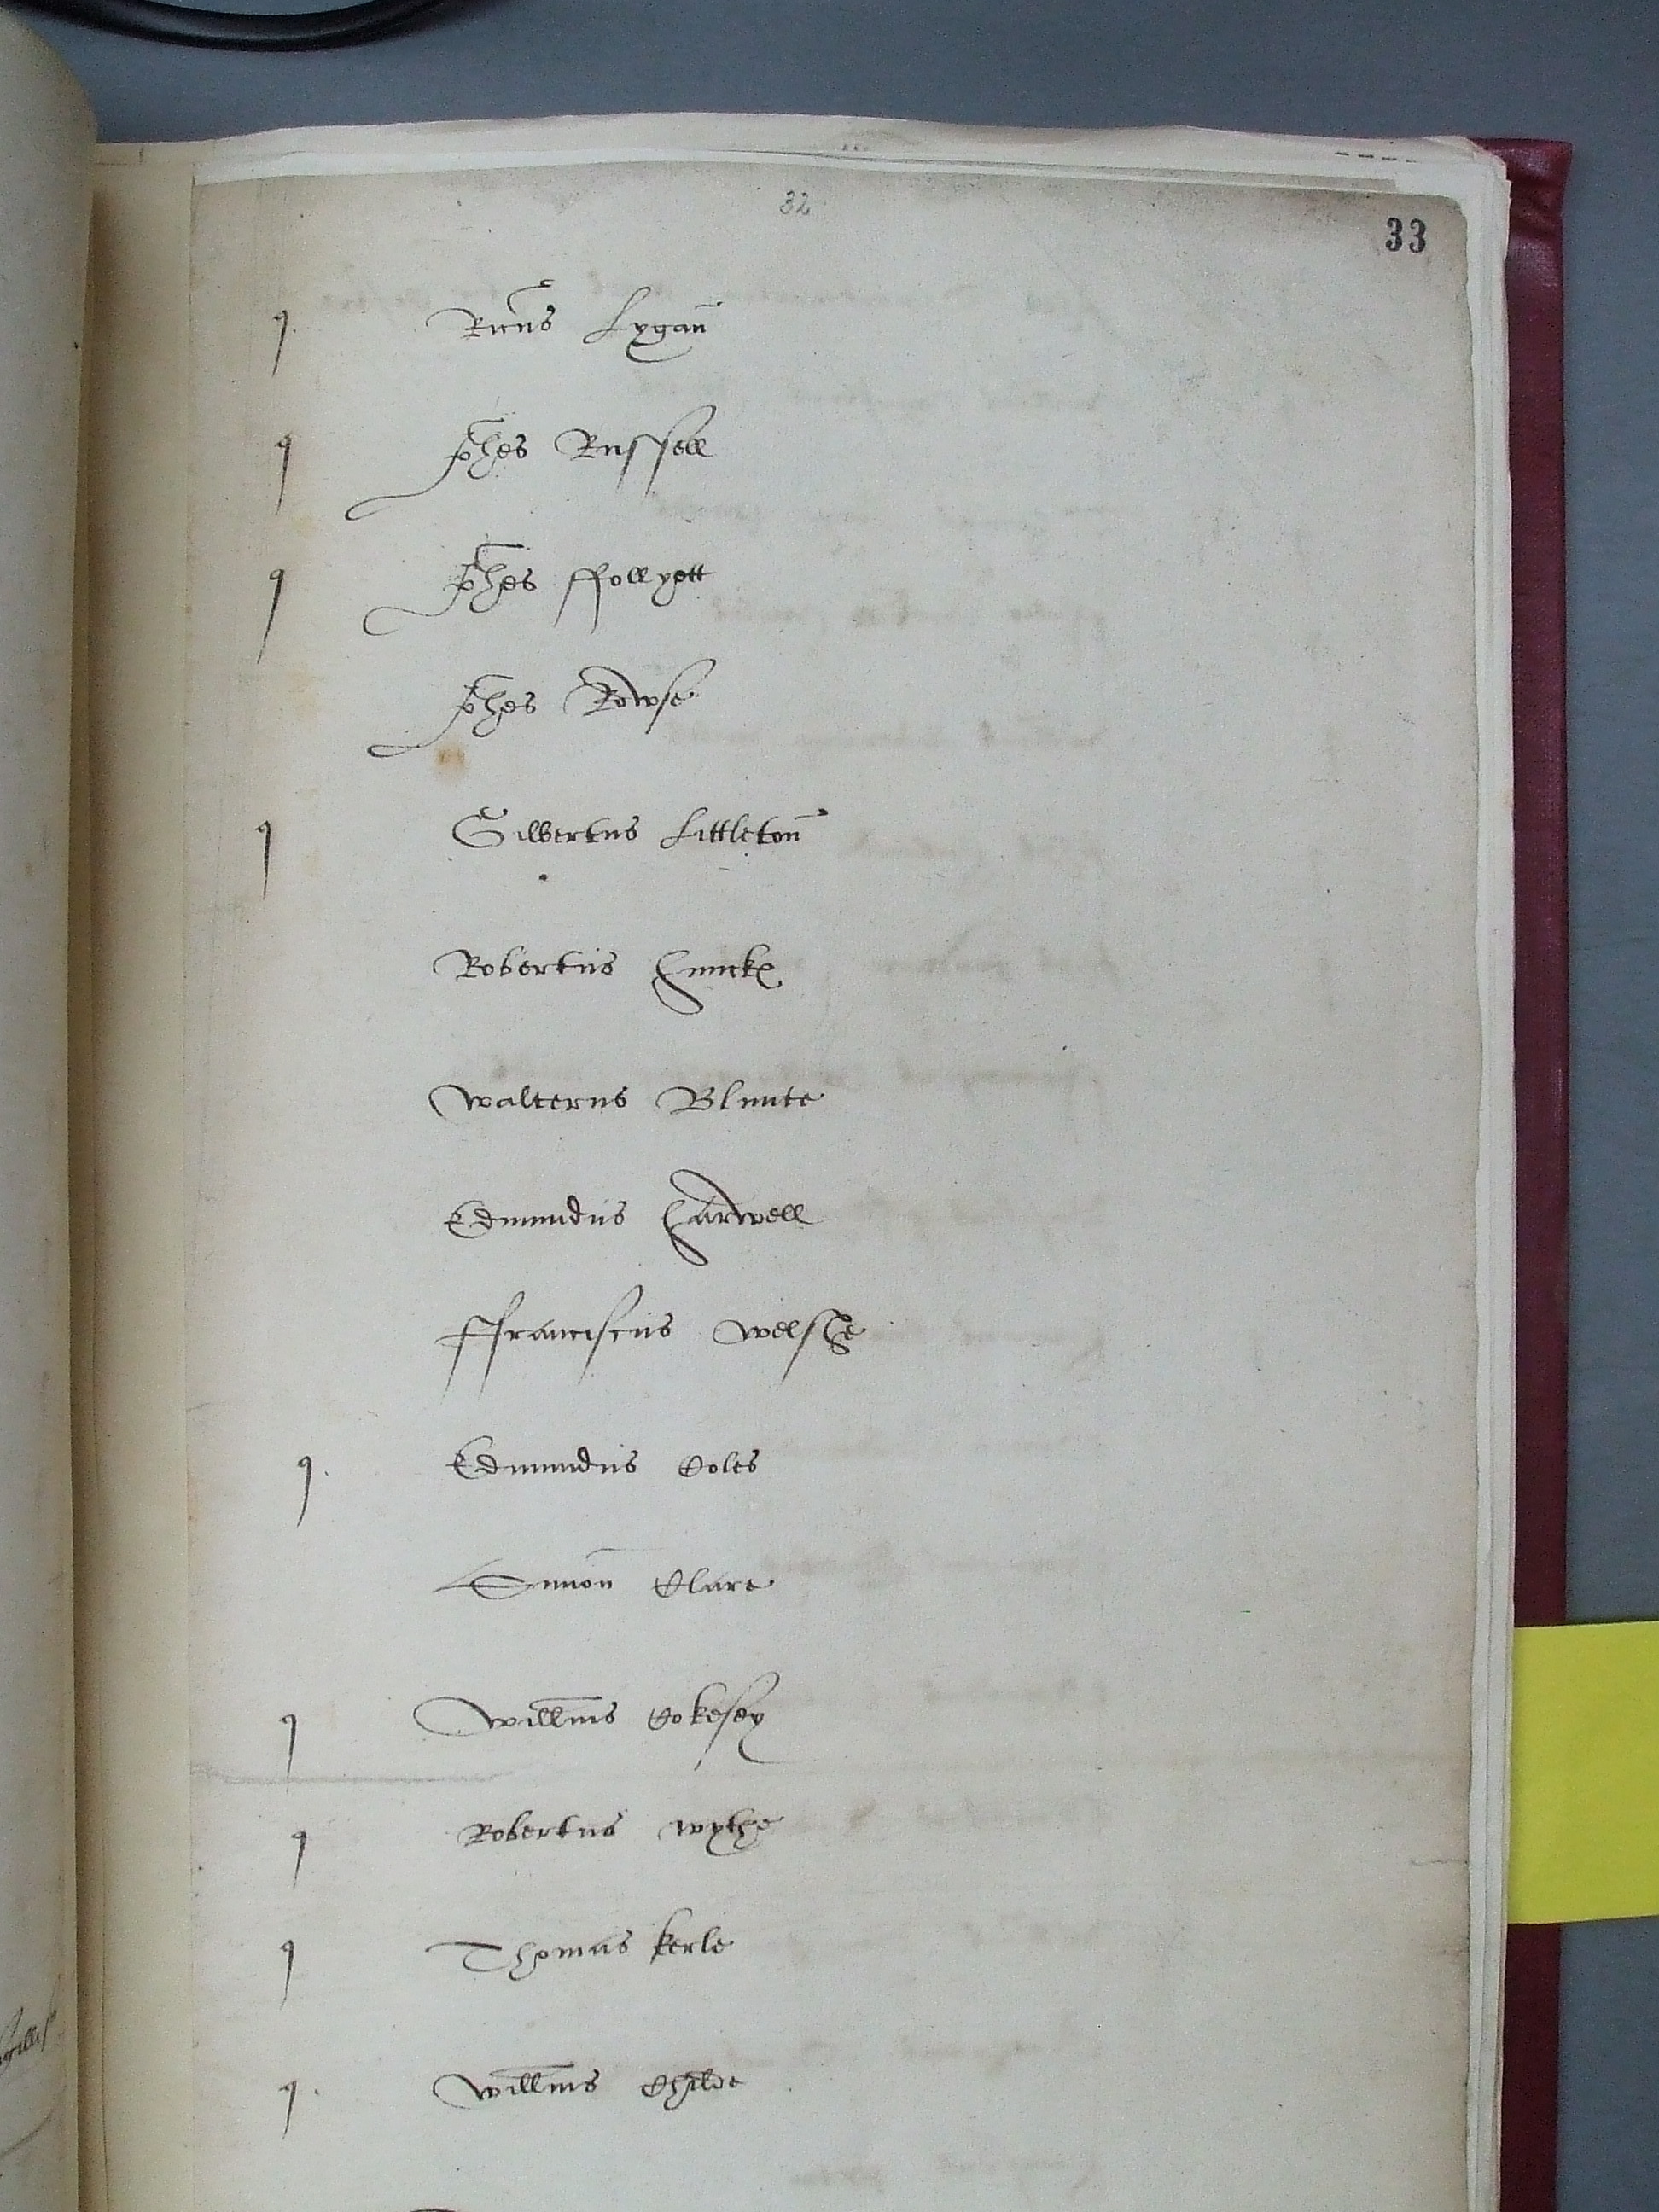 32
33
q. Ricus Lygan
q Johes Russell
q Johes ffollyett
Johes Rowse
q Gilbertus Littleton
Robertus Hunckes
Walterus Blunte
Edmundus Harwell
ffranciscus Welshe
q. Edmundus Coles
Simon Clare
q Willmus Cokesey
q Robertus Wythe
q Thomas Kerle
q. Willmus Childe